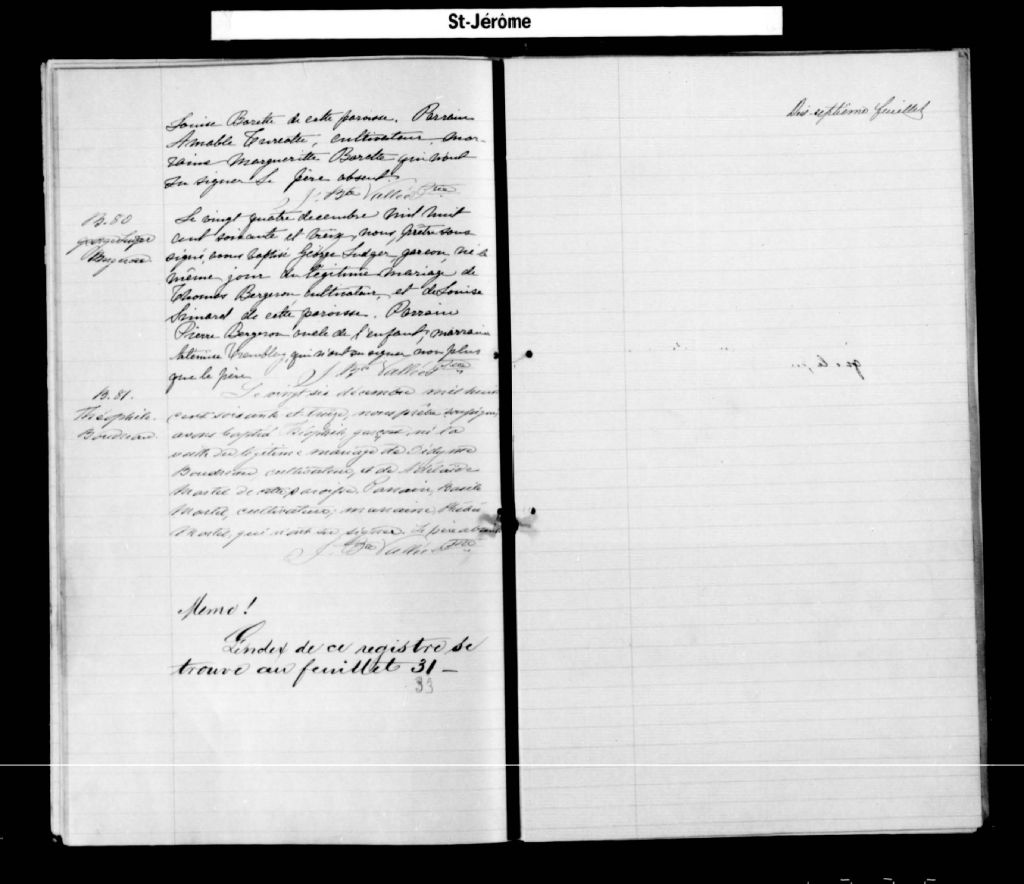 St-Jérôme
Louise Barette de cette paroisse. Parrain
Amable Turcotte, cultivateur, mar-
raine Margueritte Barette qui n'ont
su signer le père absent.
J. Bte Vallée Ptre
B. 80
Bergeron
Le vingt quatre decembre mil huit
cent soixante et treize, nous, prêtre sous
signé, avons baptisé George Ludger, garçon, né le
même jour du légitime mariage de
Thomas Bergeron cultivateur, et de Louise
Simard de cette paroisse. Parrain
Pierre Bergeron oncle de l'enfant, marraine
Tremblay qui n'ont su signer non plus
que le père
J. Bte Vallée Ptre
B. 81.
Théophile
Boudreau
Le vingt six décembre mil huit
cent soixante et treize, nous prêtre soussigné
avons baptisé Théophile garçon, né la
veille du légitime mariage de Didyme
Boudreau cultivateur, et de Adelaïde
Martel de cette paroisse. Parrain, Basile
Martel, cultivateur; marraine
Martel, qui n'ont su signer. Le père absent
J. Bte Vallée Ptre
Memo!
L'index de ce registre se
trouve au feuillet 31 -
33
Dix septième feuillet